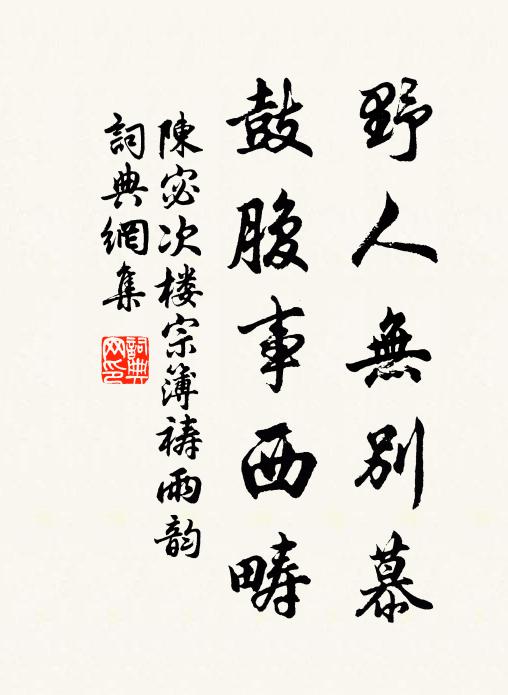 野人無別慕
鼓腹事西疇
陳宓次楼宗簿禱雨韵
詞典網集
詞典
网印